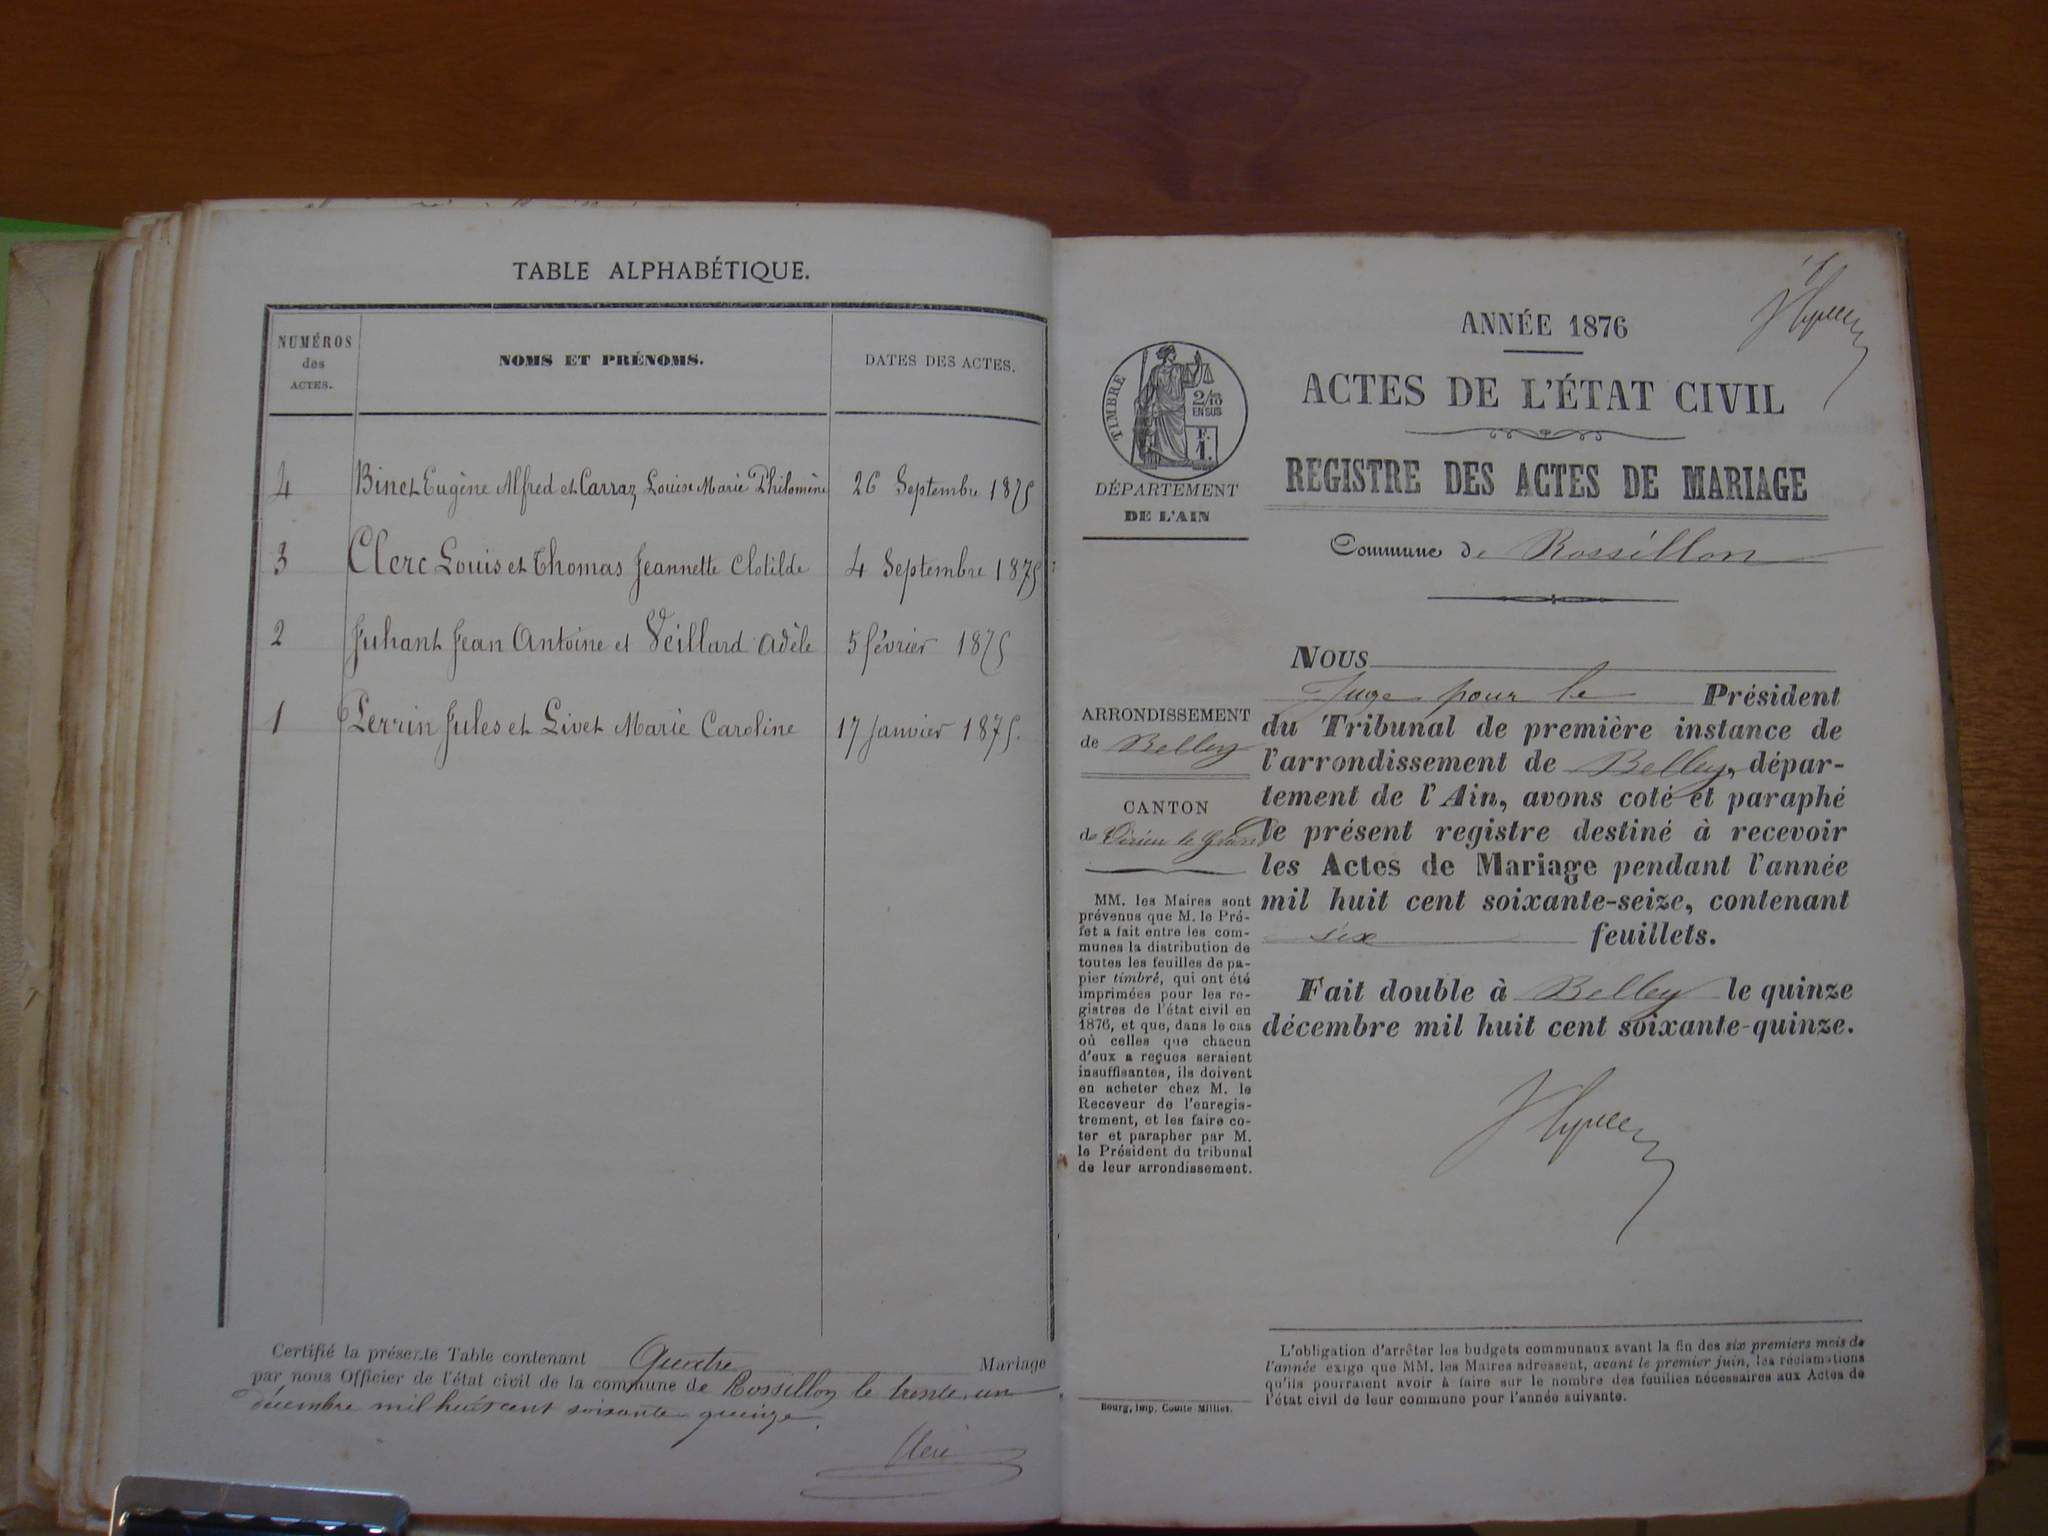 TABLE ALPHABÉTIQUE.
NUMÉROS des ACTES.
NOMS ET PRÉNOMS.
DATES DES ACTES.
4 Binet Eugène Alfred et Carraz Louise Marie Philomène 26 Septembre 1875
3 Clerc Louis et Thomas Jeannette Clotilde 4 Septembre 1875
2 Juhant Jean Antoine et Veillard Adèle 5 février 1875
1 Perrin Jules et Livet Marie Caroline 17 Janvier 1875.
Certifié la présente Table contenant Quatre Mariage
par nous Officier de l'état civil de la commune de Rossillon le trente un
décembre mil huit cent soixante quinze.
Clerc
ANNÉE 1876
ACTES DE L'ÉTAT CIVIL
REGISTRE DES ACTES DE MARIAGE
Commune de Rossillon
TIMBRE
2/10
EN SUS
F.
1.
DÉPARTEMENT
DE L'AIN
ARRONDISSEMENT
de Belley
CANTON
de Virieu le Grand
MM. les Maires sont
prévenus que M. le Pré-
fet a fait entre les com-
munes la distribution de
toutes les feuilles de pa-
pier timbré, qui ont été
imprimées pour les re-
gistres de l'état civil en
1876, et que, dans le cas
où celles que chacun
d'eux a reçues seraient
insuffisantes, ils doivent
en acheter chez M. le
Receveur de l'enregis-
trement, et les faire co-
ter et parapher par M.
le Président du tribunal
de leur arrondissement.
Bourg, imp. Comte-Milliet.
NOUS
Juge pour le Président
du Tribunal de première instance de
l'arrondissement de Belley, dépar-
tement de l'Ain, avons coté et paraphé
le présent registre destiné à recevoir
les Actes de Mariage pendant l'année
mil huit cent soixante-seize, contenant
six feuillets.
Fait double à Belley le quinze
décembre mil huit cent soixante-quinze.
L'obligation d'arrêter les budgets communaux avant la fin des six premiers mois de
l'année exige que MM. les Maires adressent, avant le premier juin, les réclamations
qu'ils pourraient avoir à faire sur le nombre des feuilles nécessaires aux Actes de
l'état civil de leur commune pour l'année suivante.